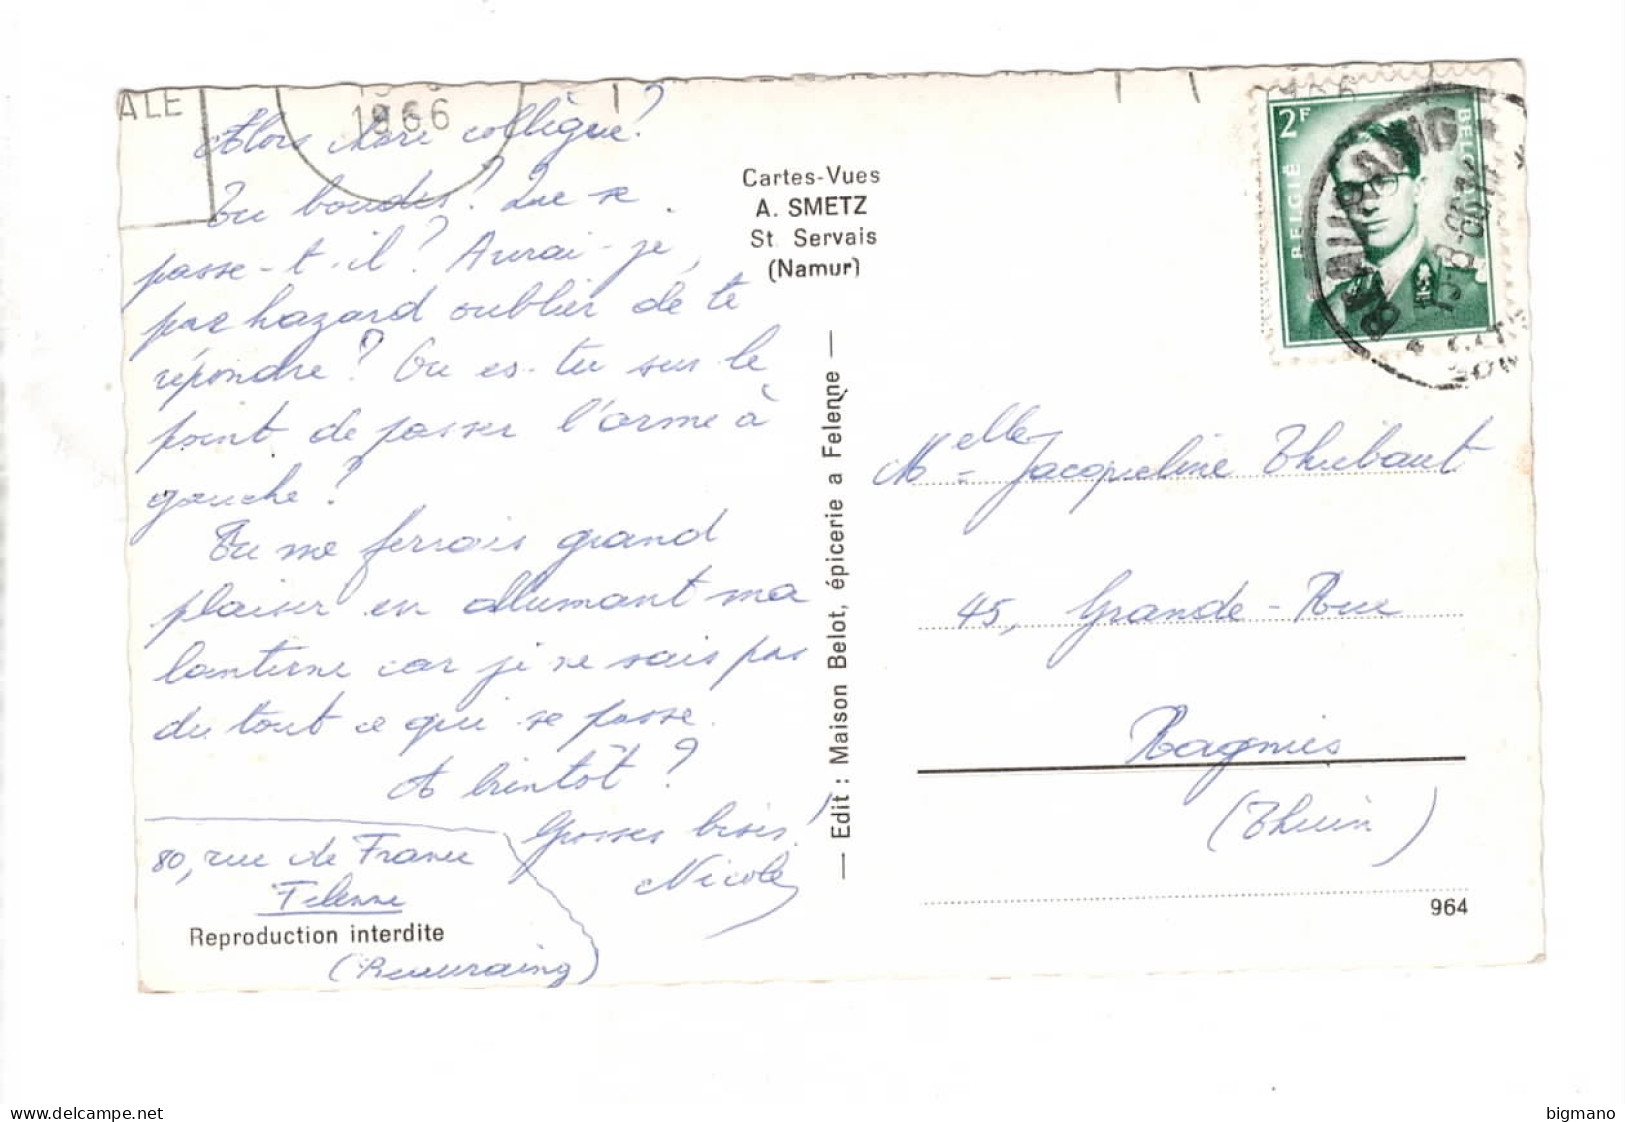 ALE
1966
Alors chère collègue?
Tu boudes? Que se
passe-t-il? Aurai-je,
par hazard oublier de te
répondre? Ou es-tu sur le
point de passer l'arme à
gauche?
Tu me ferrais grand
plaisir en allumant ma
lanterne car je ne sais pas
du tout ce qui se passe.
A bientôt?
Grosses bises!
Nicole
80, rue de France
Felenne
Reproduction interdite
(Beauraing)
Cartes-Vues
A. SMETZ
St. Servais
(Namur)
— Edit : Maison Belot, épicerie a Felenne —
2F
BELGIË
BEAURAING
Melle Jacqueline Thibaut
45, Grande-Rue
Ragnies
(Thuin)
964
delcampe.net
bigmano